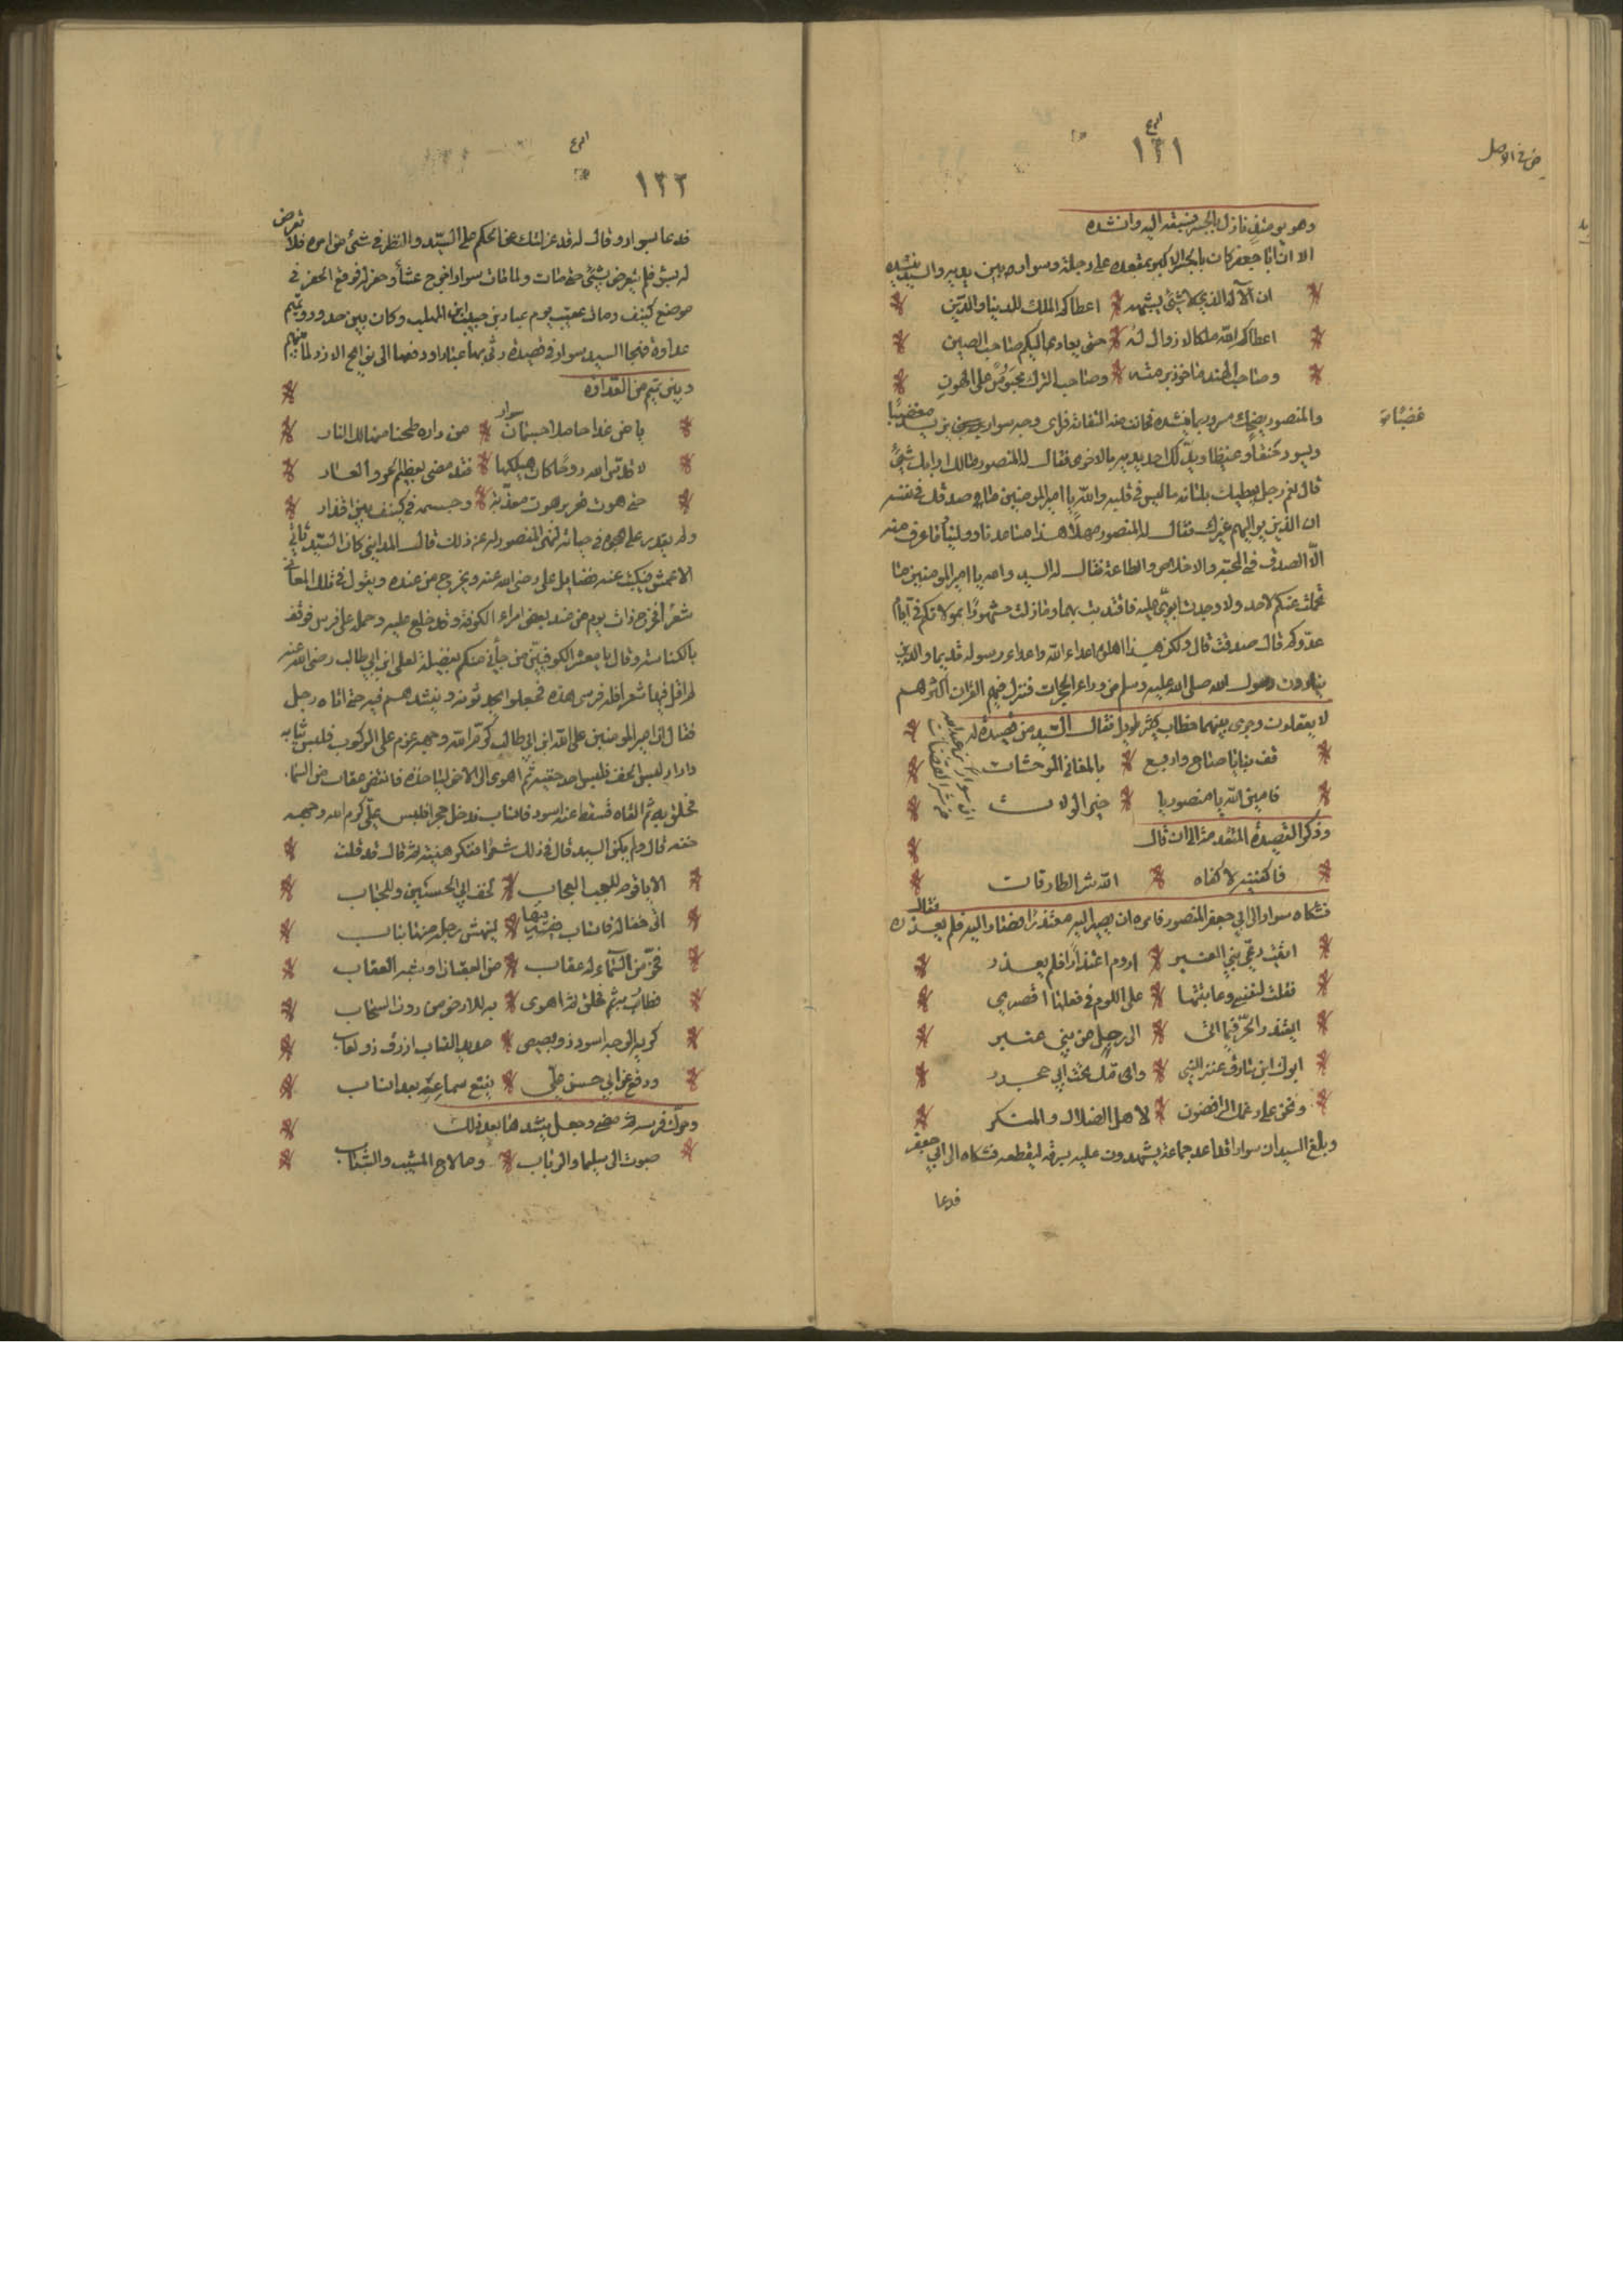 ١٣١
وهو يومئذ نازل بالجسر فسبقه اليه وانشده
الا ان ابا جعفر كان بالجسر الاكبر بمقعده على دجلة وسوار بين يديه والسيد ينشده
ان الآله الذي لا شيء يشبهه * اعطاكم الملك للدنيا والدين
اعطاكم الله ملكا لا زوال له * حتى يعاد اليكم صاحب الصين
وصاحب الهند ماخوذ برمته * وصاحب الترك محبوس على الهون
والمنصور يضحك سرورا بما ينشده فحانت منه التفاتة فراى وجه سوار يتربد غضبًا
ويسود حنقا وغيظا ويدلك احدى يديه بالاخرى فقال له المنصور مالك ارابك شيءٌ
قال نعم رجل يعطيك بلسانه ما ليس في قلبه والله يا امير المومنين ما صدقك في نفسه
ان الذين يواليهم غيرك فقال له المنصور مهلاً هذا شاعرنا وولينا وما عرف منه
الّا الصدق في المحبة والاخلاص والطاعة فقال له السيد والله يا امير المومنين ما
تحملت عنكم لاحد ولا وجدت ابويّ عليه فاقتديت بهما وما زلت مشهورًا بموالاتكم في ايام
عدّوكم قال صدقت قال ولكن هذا اهله اعداء الله واعداء رسوله قديما والذين
ينادون رسول الله صلى الله عليه وسلم من وراء الحجرات فنزل فيهم القران اكثرهم
لا يعقلون وجرى بينهما خطاب كثير طويل فقال السيد من قصيدة له
قف بنا يا صاح واربع * بالمغاني الموحشات
يا امين الله يا منصور يا * خير الولات
ان سوار بن عبدالله من شر القضات
وذكر القصيدة المتقدمة الى ان قال
فاكفنيه لا كفاه * الله شر الطارقات
فشكاه سوار الى ابي جعفر المنصور فامره ان يصير اليه معتذرًا فصار اليه فلم يعذره فقال
اتيت دعيّ بني العنبر * اروم اعتذاراً فلم يعذر
فقلت لنفسي وعاتبتها * على اللوم في فعلها اقصري
ايعتذر الحرّ فيما اتى * الى رجل من بني عنبر
ابوك ابن سارق عنز النبي * وامك بنت ابي جحدر
ونحن على رغمك الرافضون * لاهل الضلال والمنكر
وبلغ السيد ان سوارا قد اعد جماعة يشهدون عليه بسرقة ليقطعه فشكاه الى ابي جعفر
فدعا
غضبًا
في الاصل
١٣٢
فدعا بسوار وقال له قد عزلتك عن الحكم على السيد والنظر في شيء من امره فلا تعرض
له بسوء فلم يتعرض بشيء حتى مات ولما مات سوار اخرج عشاً وحفر له فوقع الحفر في
موضع كنيف ومات عقيب يوم عباد بن حبيب ابن المهلب وكان بين سدوس وتميم
عداوة فهجا السيد سوار في قصيدة رثى بها عبادا ودفعها الى نوايح الازد لما بينهم
وبين تميم من العداوة
يا من غدا حاملا جثمان سوار * من داره ظاعنا منها الى النار
لا قدس الله روحًا كان هيكلها * فقد مضى بعظيم الخزي والعار
حتى هوت قعر برهوت معذبة * وجسمه في كنيف بين اقذار
ولم يقدر على هجوه في حياته لنهي المنصور له عن ذلك قال المدايني كان السيد ياتي
الاعمش فيكتب عنه فضايل علي رضي الله عنه ويخرج من عنده ويقول في تلك المعاني
شعرًا فخرج ذات يوم من عند بعض امراء الكوفة وقد خلع عليه وحمله على فرس فوقف
بالكناسة وقال يا معشر الكوفيين من جاني منكم بفضيلة لعلي ابن ابي طالب رضي الله عنه
لم اقل فيها شعرا فله فرسي هذه فجعلوا يحدثونه وينشدهم فيه حتى اتاه رجل
فقال ان امير المومنين علي ابن ابي طالب كرّم الله وجهه عزم على الركوب فلبس ثيابه
واراد لبس الخف فلبس احد خفيه ثم اهوى الى الاخر لياخذه فانقض عقاب من السما
فحلق به ثم القاه فسقط منه اسود فانساب فدخل جحرا فلبس علي كرم الله وجهه
خفه قال ولم يكن السيد قال في ذلك شعرا ففكر هنيهة ثم قال قد قلت
الا يا قوم للعجب العجاب * لخف ابي الحسين وللحباب
اتى خفا له فانساب فيها * لينهش رجله منها بناب
فخرّ من السماء له عقاب * من العقبان او شبه العقاب
فطار به فحلق ثم اهوى * به للارض من دون السحاب
كريه الوجه اسود ذو بصيص * حديد الناب ازرق ذو لعاب
ودفع عن ابي حسن علي * نقيع سمامه بعد انساب
وحرك فرسه ثم مضى وجعل ينشدها بعد ذلك
صبوت الى سليما والرباب * وما لاخ المشيب والتصاب